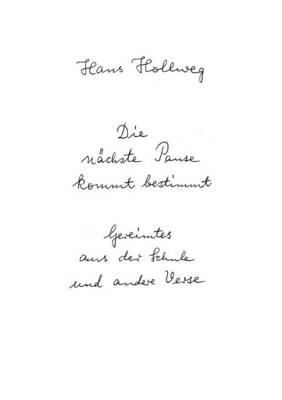 Hans Hollweg
Die
nächste Pause
kommt bestimmt
Gereimtes
aus der Schule
und andere Verse